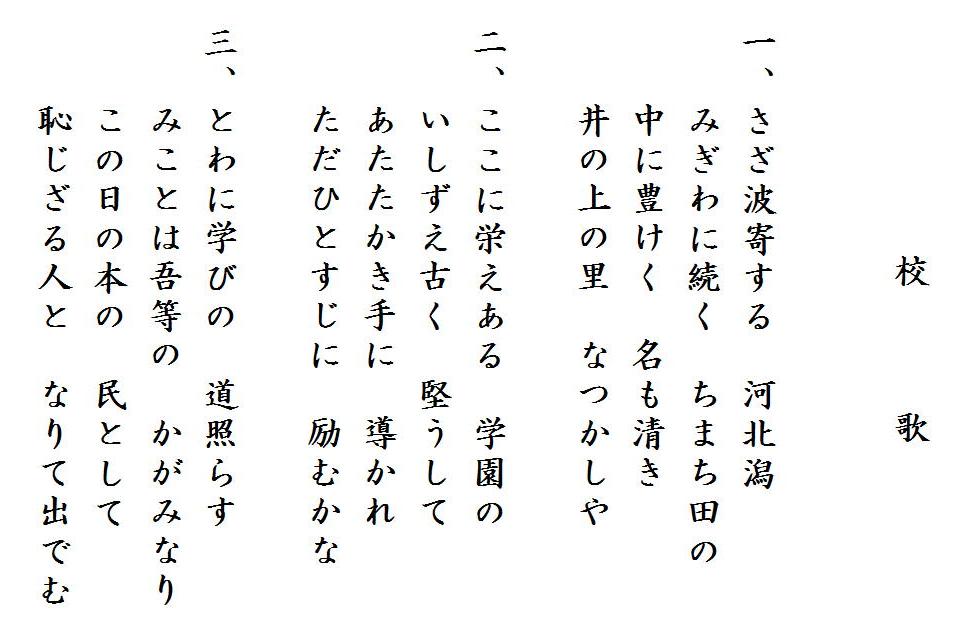 校 歌
一、さざ波寄する 河北潟
みぎわに続く ちまち田の
中に豊けく 名も清き
井の上の里 なつかしや
二、ここに栄えある 学園の
いしずえ古く 堅うして
あたたかき手に 導かれ
ただひとすじに 励むかな
三、とわに学びの 道照らす
みことは吾等の かがみなり
この日の本の 民として
恥じざる人と なりて出でむ